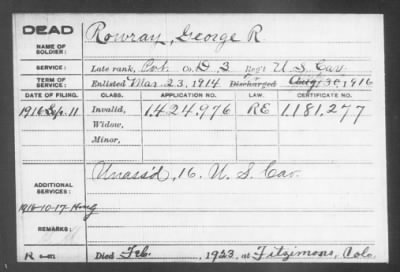 DEAD
NAME OF SOLDIER:
Rowray, George R
SERVICE:
Late rank, Co. D. 3 Reg't U.S. Cav.
TERM OF SERVICE:
Enlisted Mar. 23, 1914 Discharged Aug. 30, 1916
DATE OF FILING. CLASS. APPLICATION NO. LAW. CERTIFICATE NO.
1916 Sep. 11 Invalid, 1,424,976 RE 1,181,277
Widow,
Minor,
ADDITIONAL SERVICES:
Unass'd, 16. U. S. Cav.
1916-10-17
REMARKS:
R 3-471
Died Feb. , 1923, at Fitzimons, Colo.